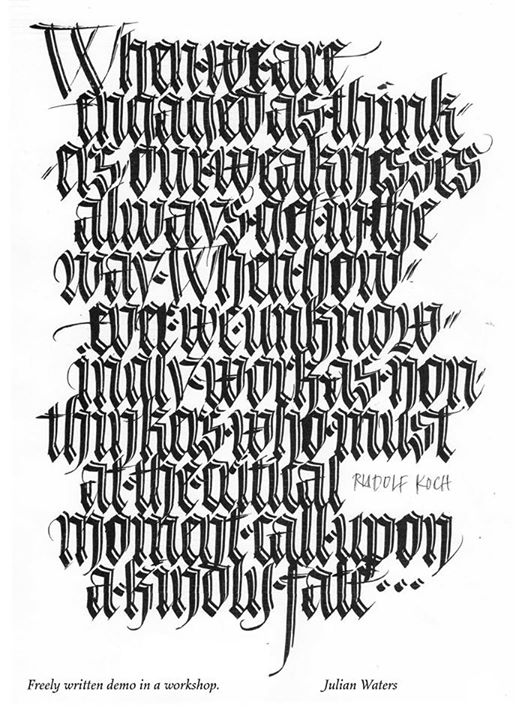 When·we·are
engaged as·think-
ers·our·weaknesses
always·get·in·the
way·When·how-
ever·we·unknow-
ingly·work·as·non-
thinkers·who·must
at·the·critical
RUDOLF KOCH
moment·call·upon
a·kindly·fate···
Freely written demo in a workshop.
Julian Waters